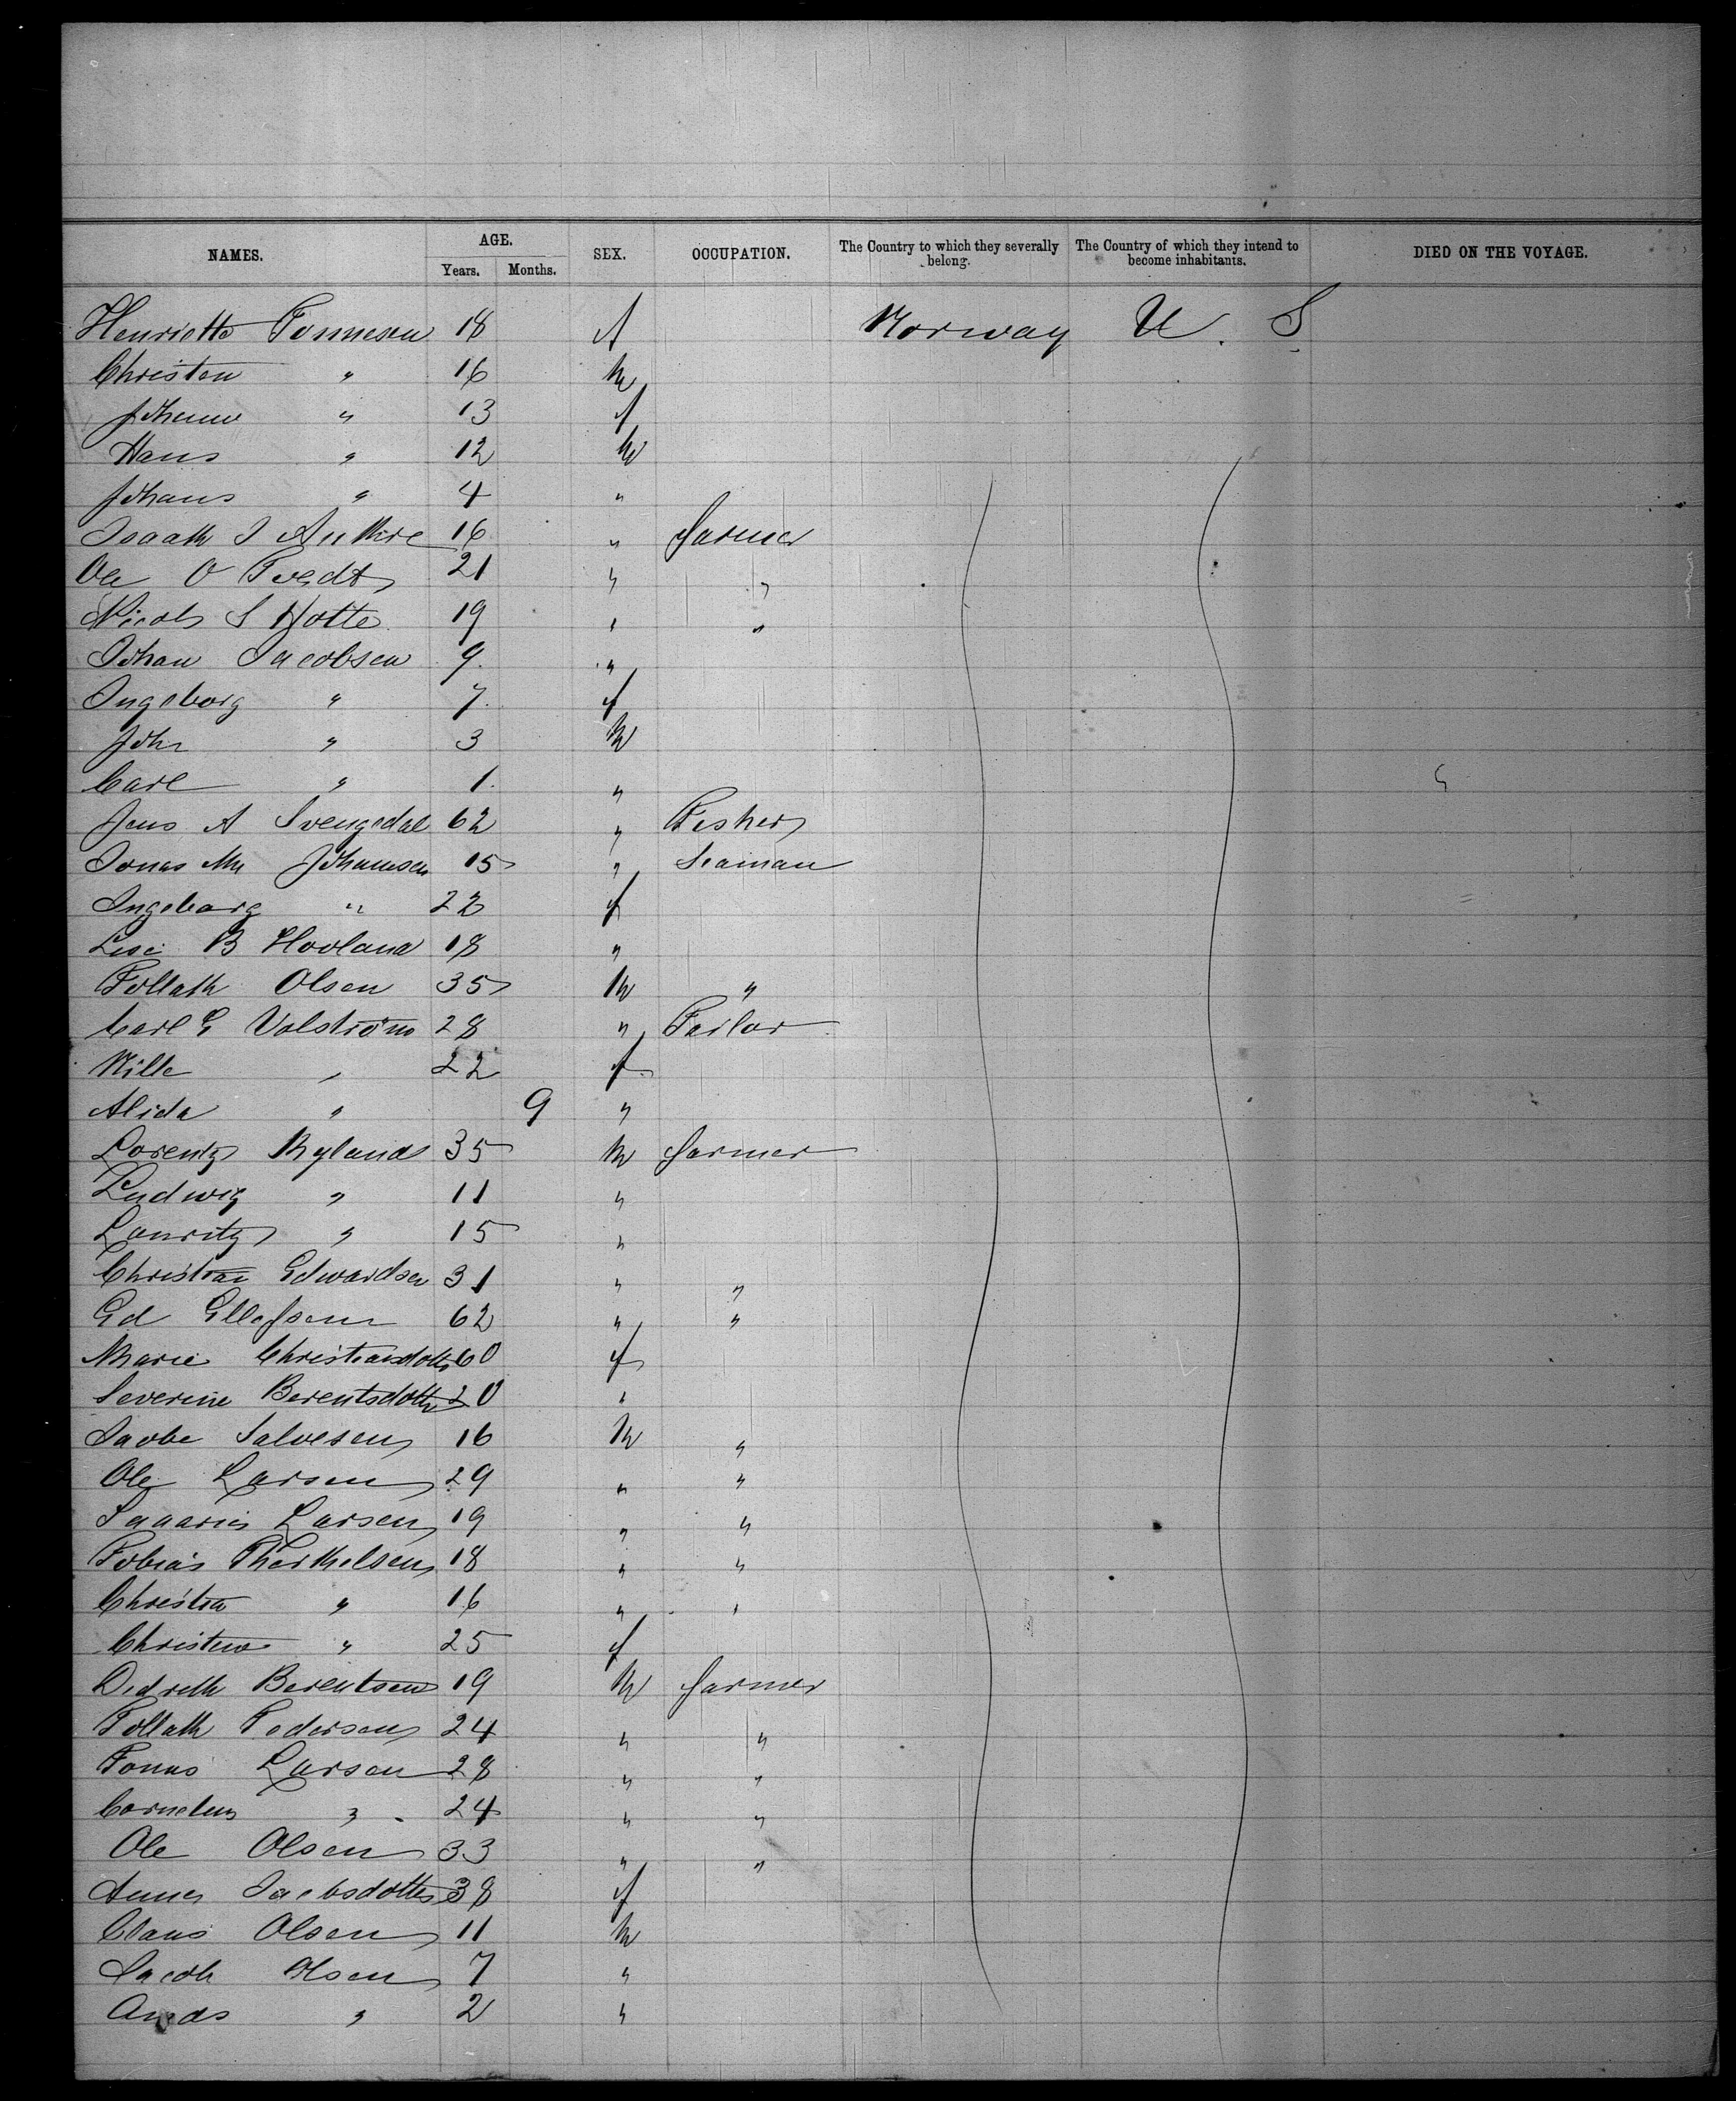 NAMES. AGE. SEX. OCCUPATION. The Country to which they severally belong. The Country of which they intend to become inhabitants. DIED ON THE VOYAGE.
Years. Months.
Henriette Tonnesen 18 f Norway U. S
Christen " 16 M
Johanne " 13 f
Hans " 12 M
Johans " 4 "
Isaath J 16 " farmer
Ole O Tvedt 21 " "
Nicols S Hotte 19 " "
Johan Jacobsen 9 "
Ingeborg " 7 f
John " 3 M
Carl " 1 "
Jens A Svengedal 62 " Fisher
Jonas M Johannsen 15 " Seaman
Ingeborg " 22 f
Lise B Hovland 18 "
Tollath Olsen 35 M "
Carl G Valstrøm 28 " Tailor
Nille " 22 f
Alida " 9 "
Lorentz Rylands 35 M farmer
Ludwig " 11 "
Lauritz " 15 "
Christian Edwardsen 31 " "
Ed Ellefsen 62 " "
Marie Christiansdotter 60 f
Severine Berentsdotter 20 "
Salvesen 16 M "
Ole Larsen 29 " "
Larsen 19 " "
Tobias Therkelsen 18 " "
Christian " 16 " "
Christine " 25 f
Didreth Berentsen 19 M farmer
Tollath Pedersen 24 " "
Tonnes Larsen 28 " "
Cornelius " 24 " "
Ole Olsen 33 " "
Anne Jacobsdotter 38 f
Claus Olsen 11 M
Jacob Olsen 7 "
" 2 "